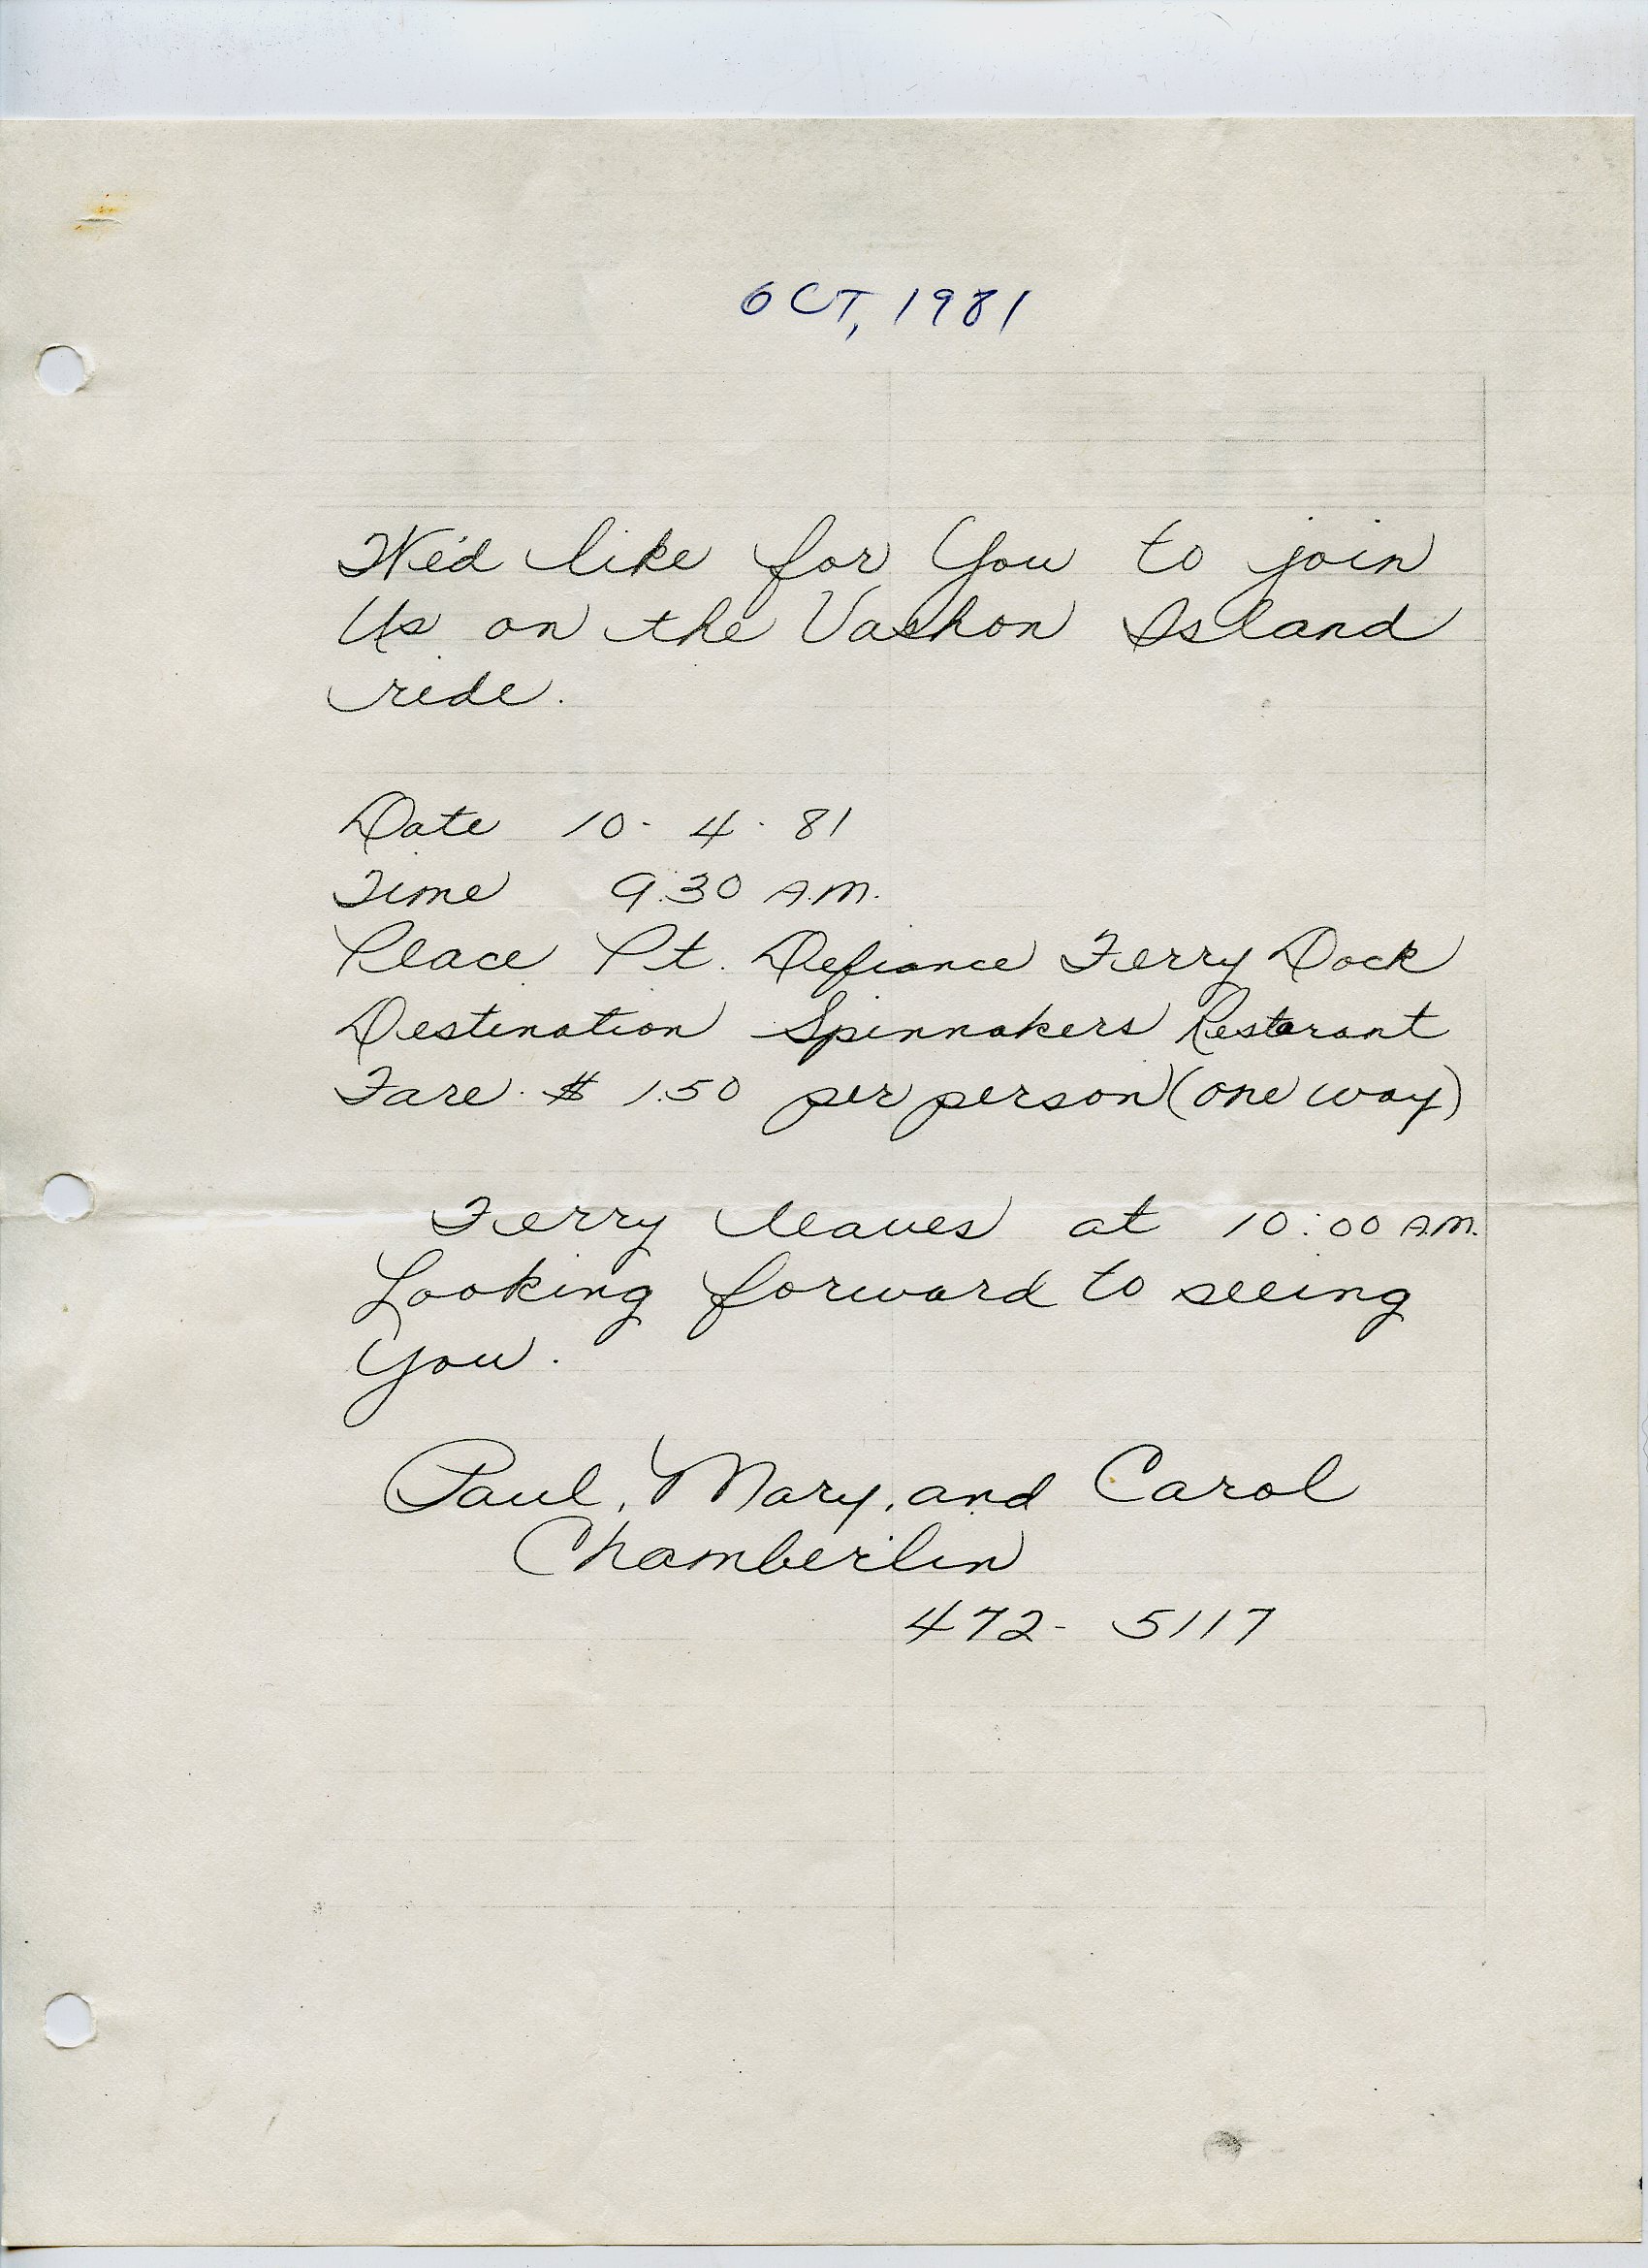 OCT, 1981
We'd like for You to join
Us on the Vashon Island
ride.
Date 10-4-81
Time 9:30 A.M.
Place Pt. Defiance Ferry Dock
Destination Spinnakers Restarant
Fare. $1.50 per person (one way)
Ferry leaves at 10:00 A.M.
Looking forward to seeing
You.
Paul, Mary, and Carol
Chamberlin
472-5117